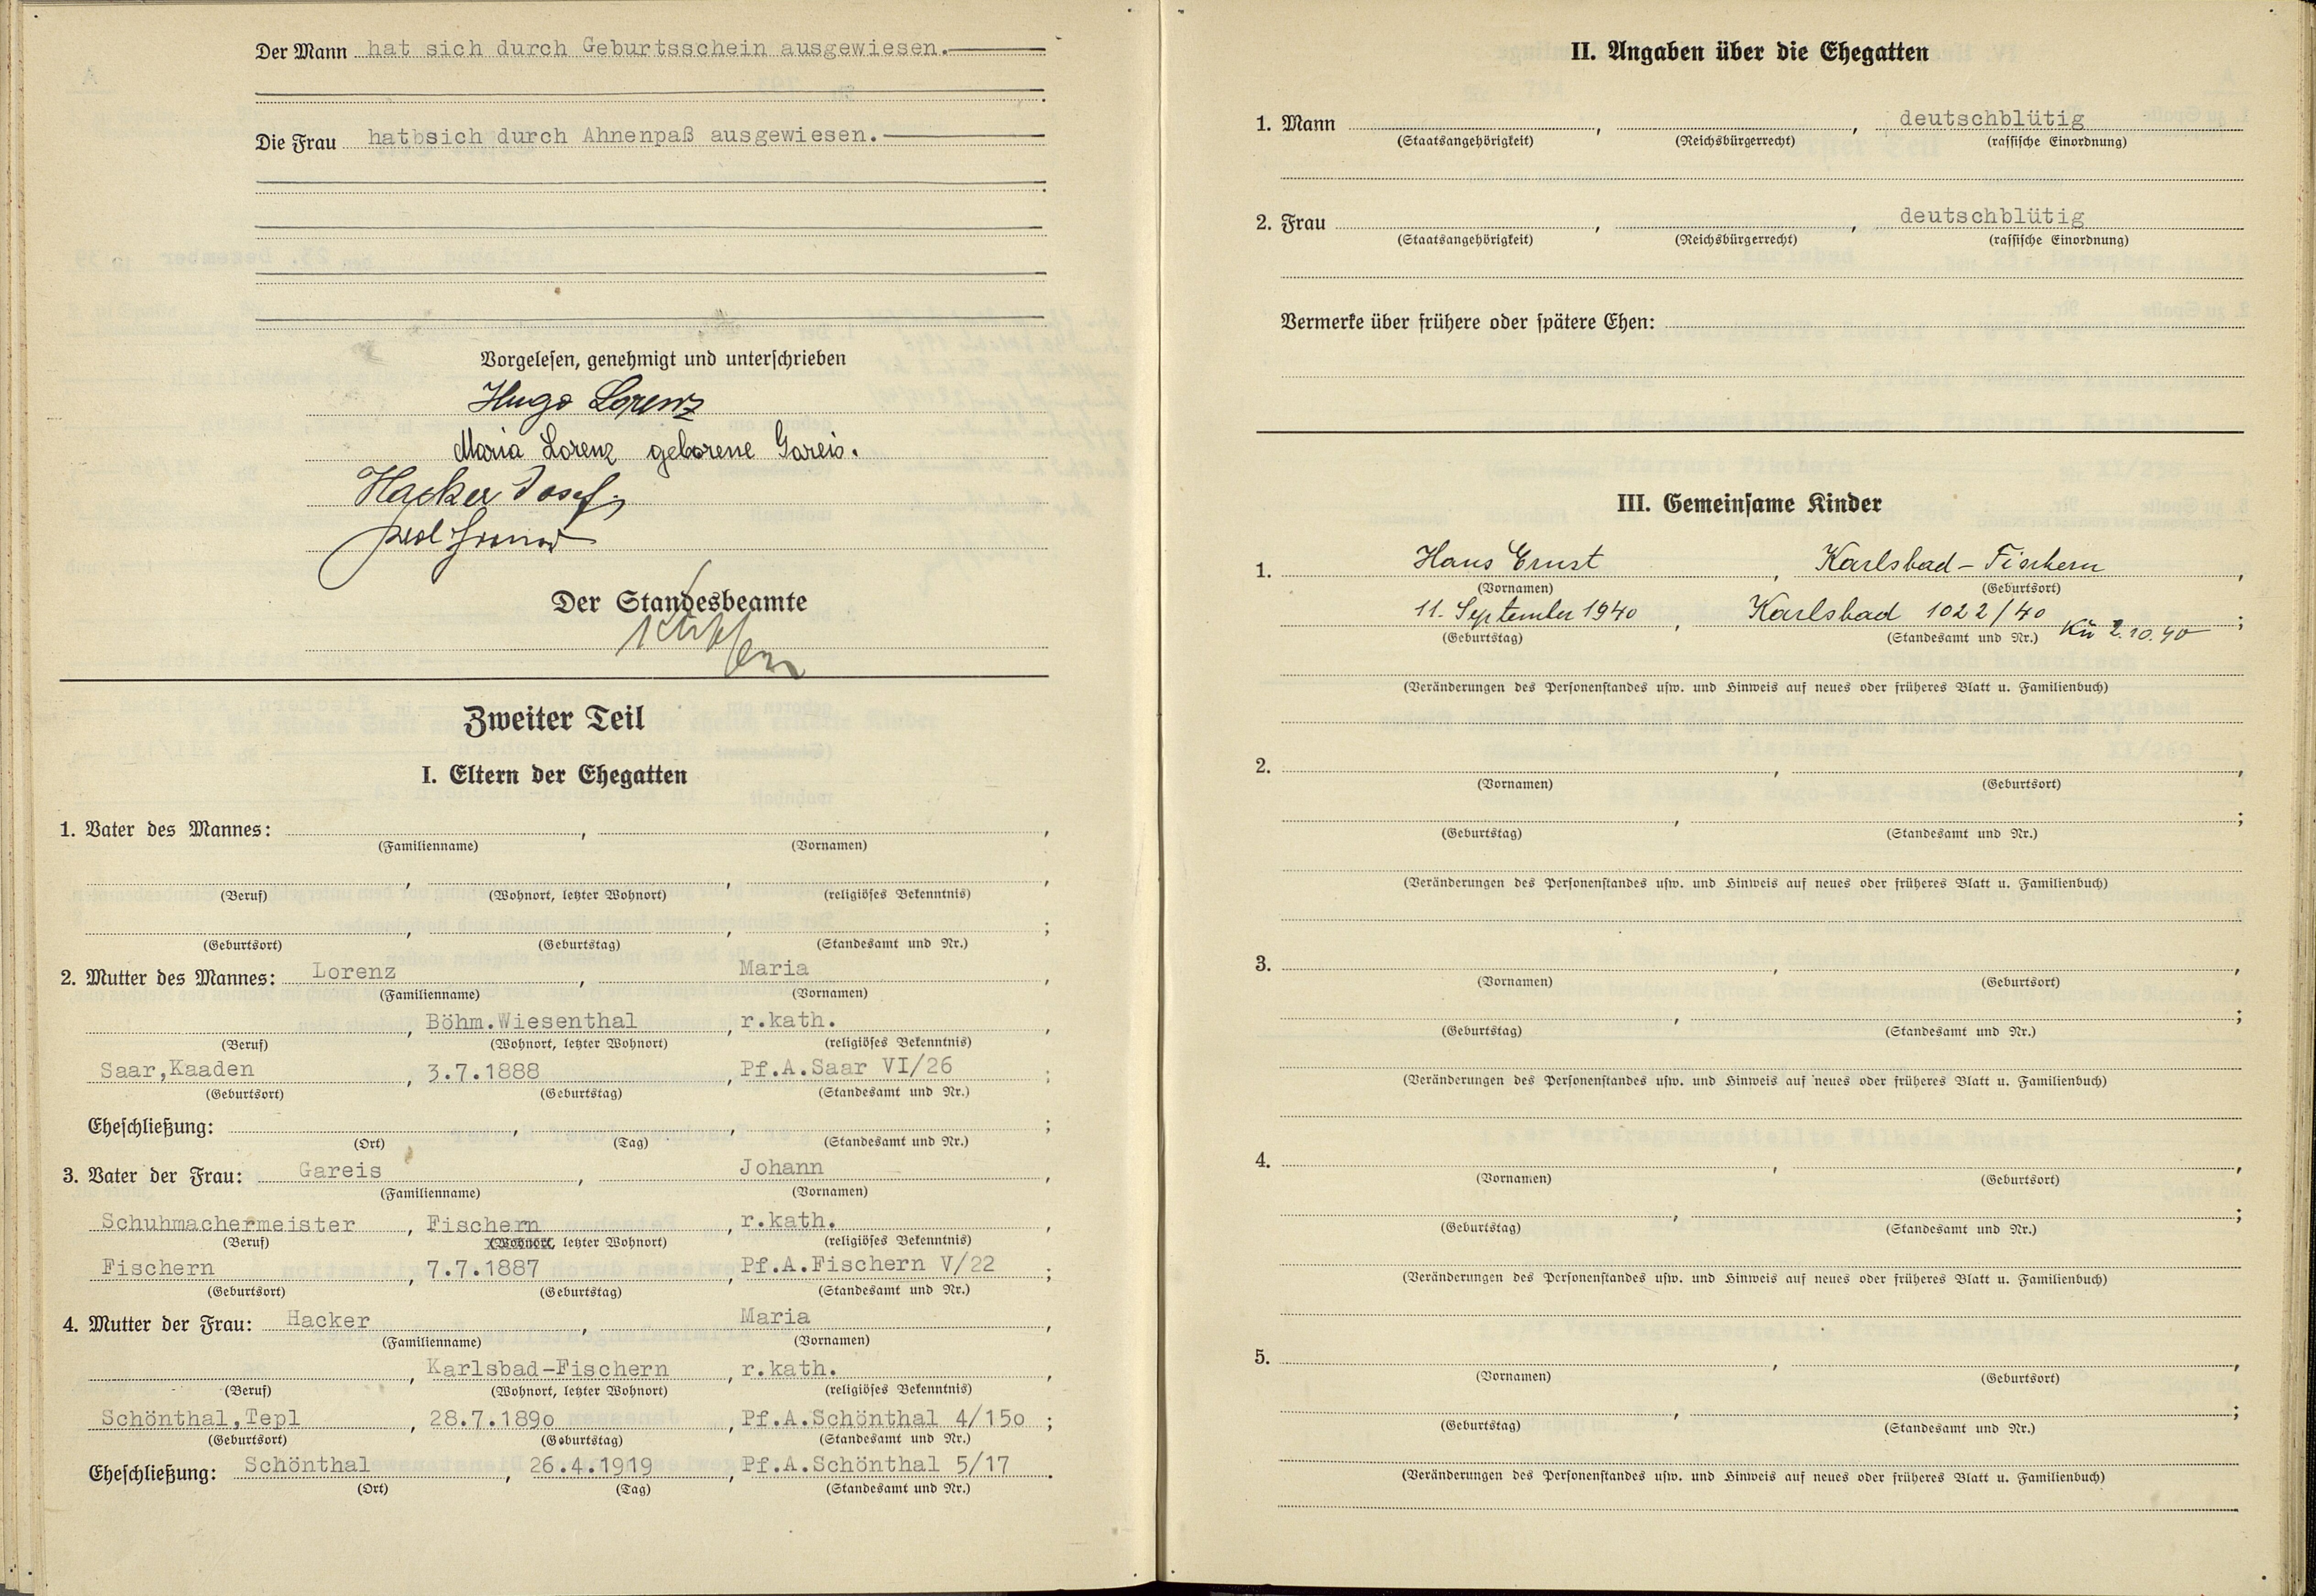 Der Mann hat sich durch Geburtsschein ausgewiesen.
Die Frau hatbsich durch Ahnenpaß ausgewiesen.
Vorgelesen, genehmigt und unterschrieben
Hugo Lorenz
Maria Lorenz geborene Gareis.
Hacker Josef
Der Standesbeamte
Zweiter Teil
I. Eltern der Ehegatten
1. Vater des Mannes: , ,
(Familienname) (Vornamen)
, , ,
(Beruf) (Wohnort, letzter Wohnort) (religiöses Bekenntnis)
, , ;
(Geburtsort) (Geburtstag) (Standesamt und Nr.)
2. Mutter des Mannes: Lorenz , Maria ,
(Familienname) (Vornamen)
, Böhm.Wiesenthal , r.kath. ,
(Beruf) (Wohnort, letzter Wohnort) (religiöses Bekenntnis)
Saar,Kaaden , 3.7.1888 , Pf.A.Saar VI/26 ;
(Geburtsort) (Geburtstag) (Standesamt und Nr.)
Eheschließung: , , ;
(Ort) (Tag) (Standesamt und Nr.)
3. Vater der Frau: Gareis , Johann ,
(Familienname) (Vornamen)
Schuhmachermeister , Fischern , r.kath. ,
(Beruf) (Wohnort, letzter Wohnort) (religiöses Bekenntnis)
Fischern , 7.7.1887 , Pf.A.Fischern V/22 ;
(Geburtsort) (Geburtstag) (Standesamt und Nr.)
4. Mutter der Frau: Hacker , Maria ,
(Familienname) (Vornamen)
, Karlsbad-Fischern , r.kath. ,
(Beruf) (Wohnort, letzter Wohnort) (religiöses Bekenntnis)
Schönthal,Tepl , 28.7.189o , Pf.A.Schönthal 4/15o ;
(Geburtsort) (Geburtstag) (Standesamt und Nr.)
Eheschließung: Schönthal , 26.4.1919 , Pf.A.Schönthal 5/17 .
(Ort) (Tag) (Standesamt und Nr.)
II. Angaben über die Ehegatten
1. Mann , , deutschblütig
(Staatsangehörigkeit) (Reichsbürgerrecht) (rassische Einordnung)
2. Frau , , deutschblütig
(Staatsangehörigkeit) (Reichsbürgerrecht) (rassische Einordnung)
Vermerke über frühere oder spätere Ehen:
III. Gemeinsame Kinder
1. Hans Ernst , Karlsbad - Fischern ,
(Vornamen) (Geburtsort)
11. September 1940 , Karlsbad 1022/40 Kü 2.10.40 ;
(Geburtstag) (Standesamt und Nr.)
(Veränderungen des Personenstandes usw. und Hinweis auf neues oder früheres Blatt u. Familienbuch)
2. , ,
(Vornamen) (Geburtsort)
, ;
(Geburtstag) (Standesamt und Nr.)
(Veränderungen des Personenstandes usw. und Hinweis auf neues oder früheres Blatt u. Familienbuch)
3. , ,
(Vornamen) (Geburtsort)
, ;
(Geburtstag) (Standesamt und Nr.)
(Veränderungen des Personenstandes usw. und Hinweis auf neues oder früheres Blatt u. Familienbuch)
4. , ,
(Vornamen) (Geburtsort)
, ;
(Geburtstag) (Standesamt und Nr.)
(Veränderungen des Personenstandes usw. und Hinweis auf neues oder früheres Blatt u. Familienbuch)
5. , ,
(Vornamen) (Geburtsort)
, ;
(Geburtstag) (Standesamt und Nr.)
(Veränderungen des Personenstandes usw. und Hinweis auf neues oder früheres Blatt u. Familienbuch)